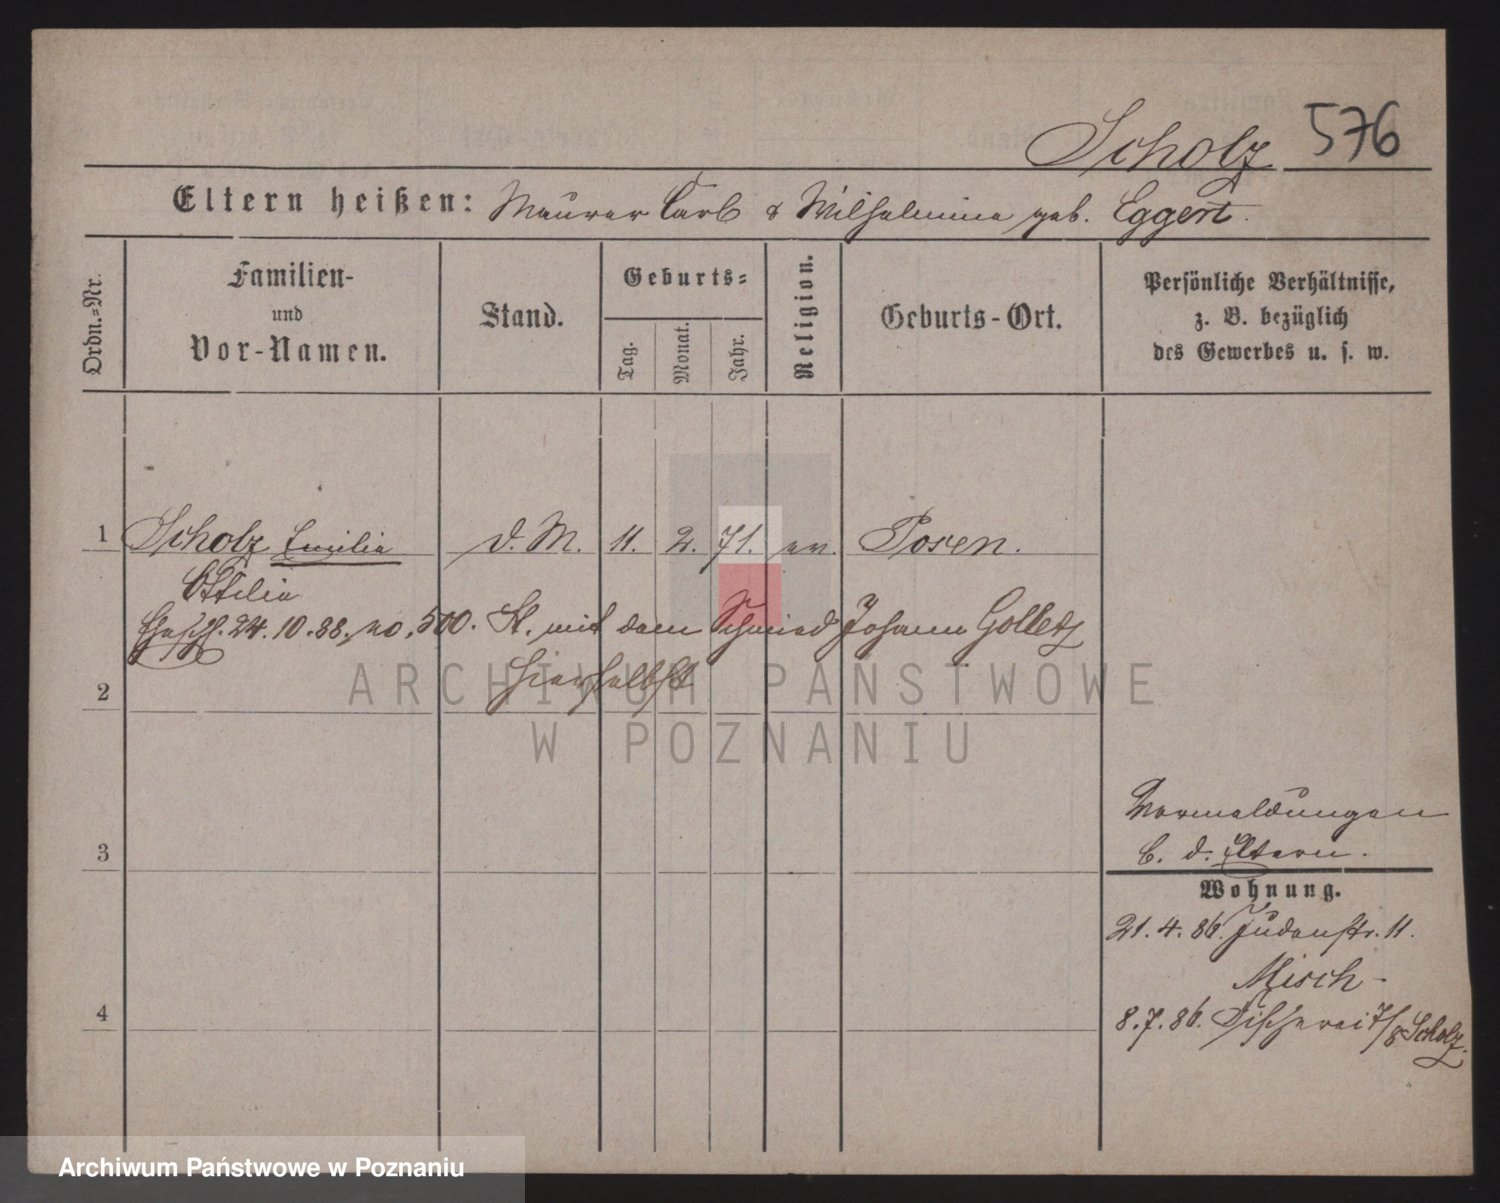 Scholz 576
Eltern heißen: Maurer Carl & Wilhelmine geb. Eggert.
Ordn.-Nr.
Familien-
und
Vor-Namen.
Stand.
Geburts-
Tag.
Monat.
Jahr.
Religion.
Geburts-Ort.
Persönliche Verhältnisse,
z. B. bezüglich
des Gewerbes u. s. w.
1 Scholz Emilie d. M. 11. 2. 71. ev. Posen.
Ottilie
24.10.88. No. 500. St. mit dem Schmied Johann Golletz
hierselbst
2
3
4
Vormeldungen
b. d. Eltern.
Wohnung.
21. 4. 86. Judenstr. 11.
Misch-
8. 7. 86. Fischerei 7/8 Scholz.
ARCHIWUM PAŃSTWOWE
W POZNANIU
Archiwum Państwowe w Poznaniu